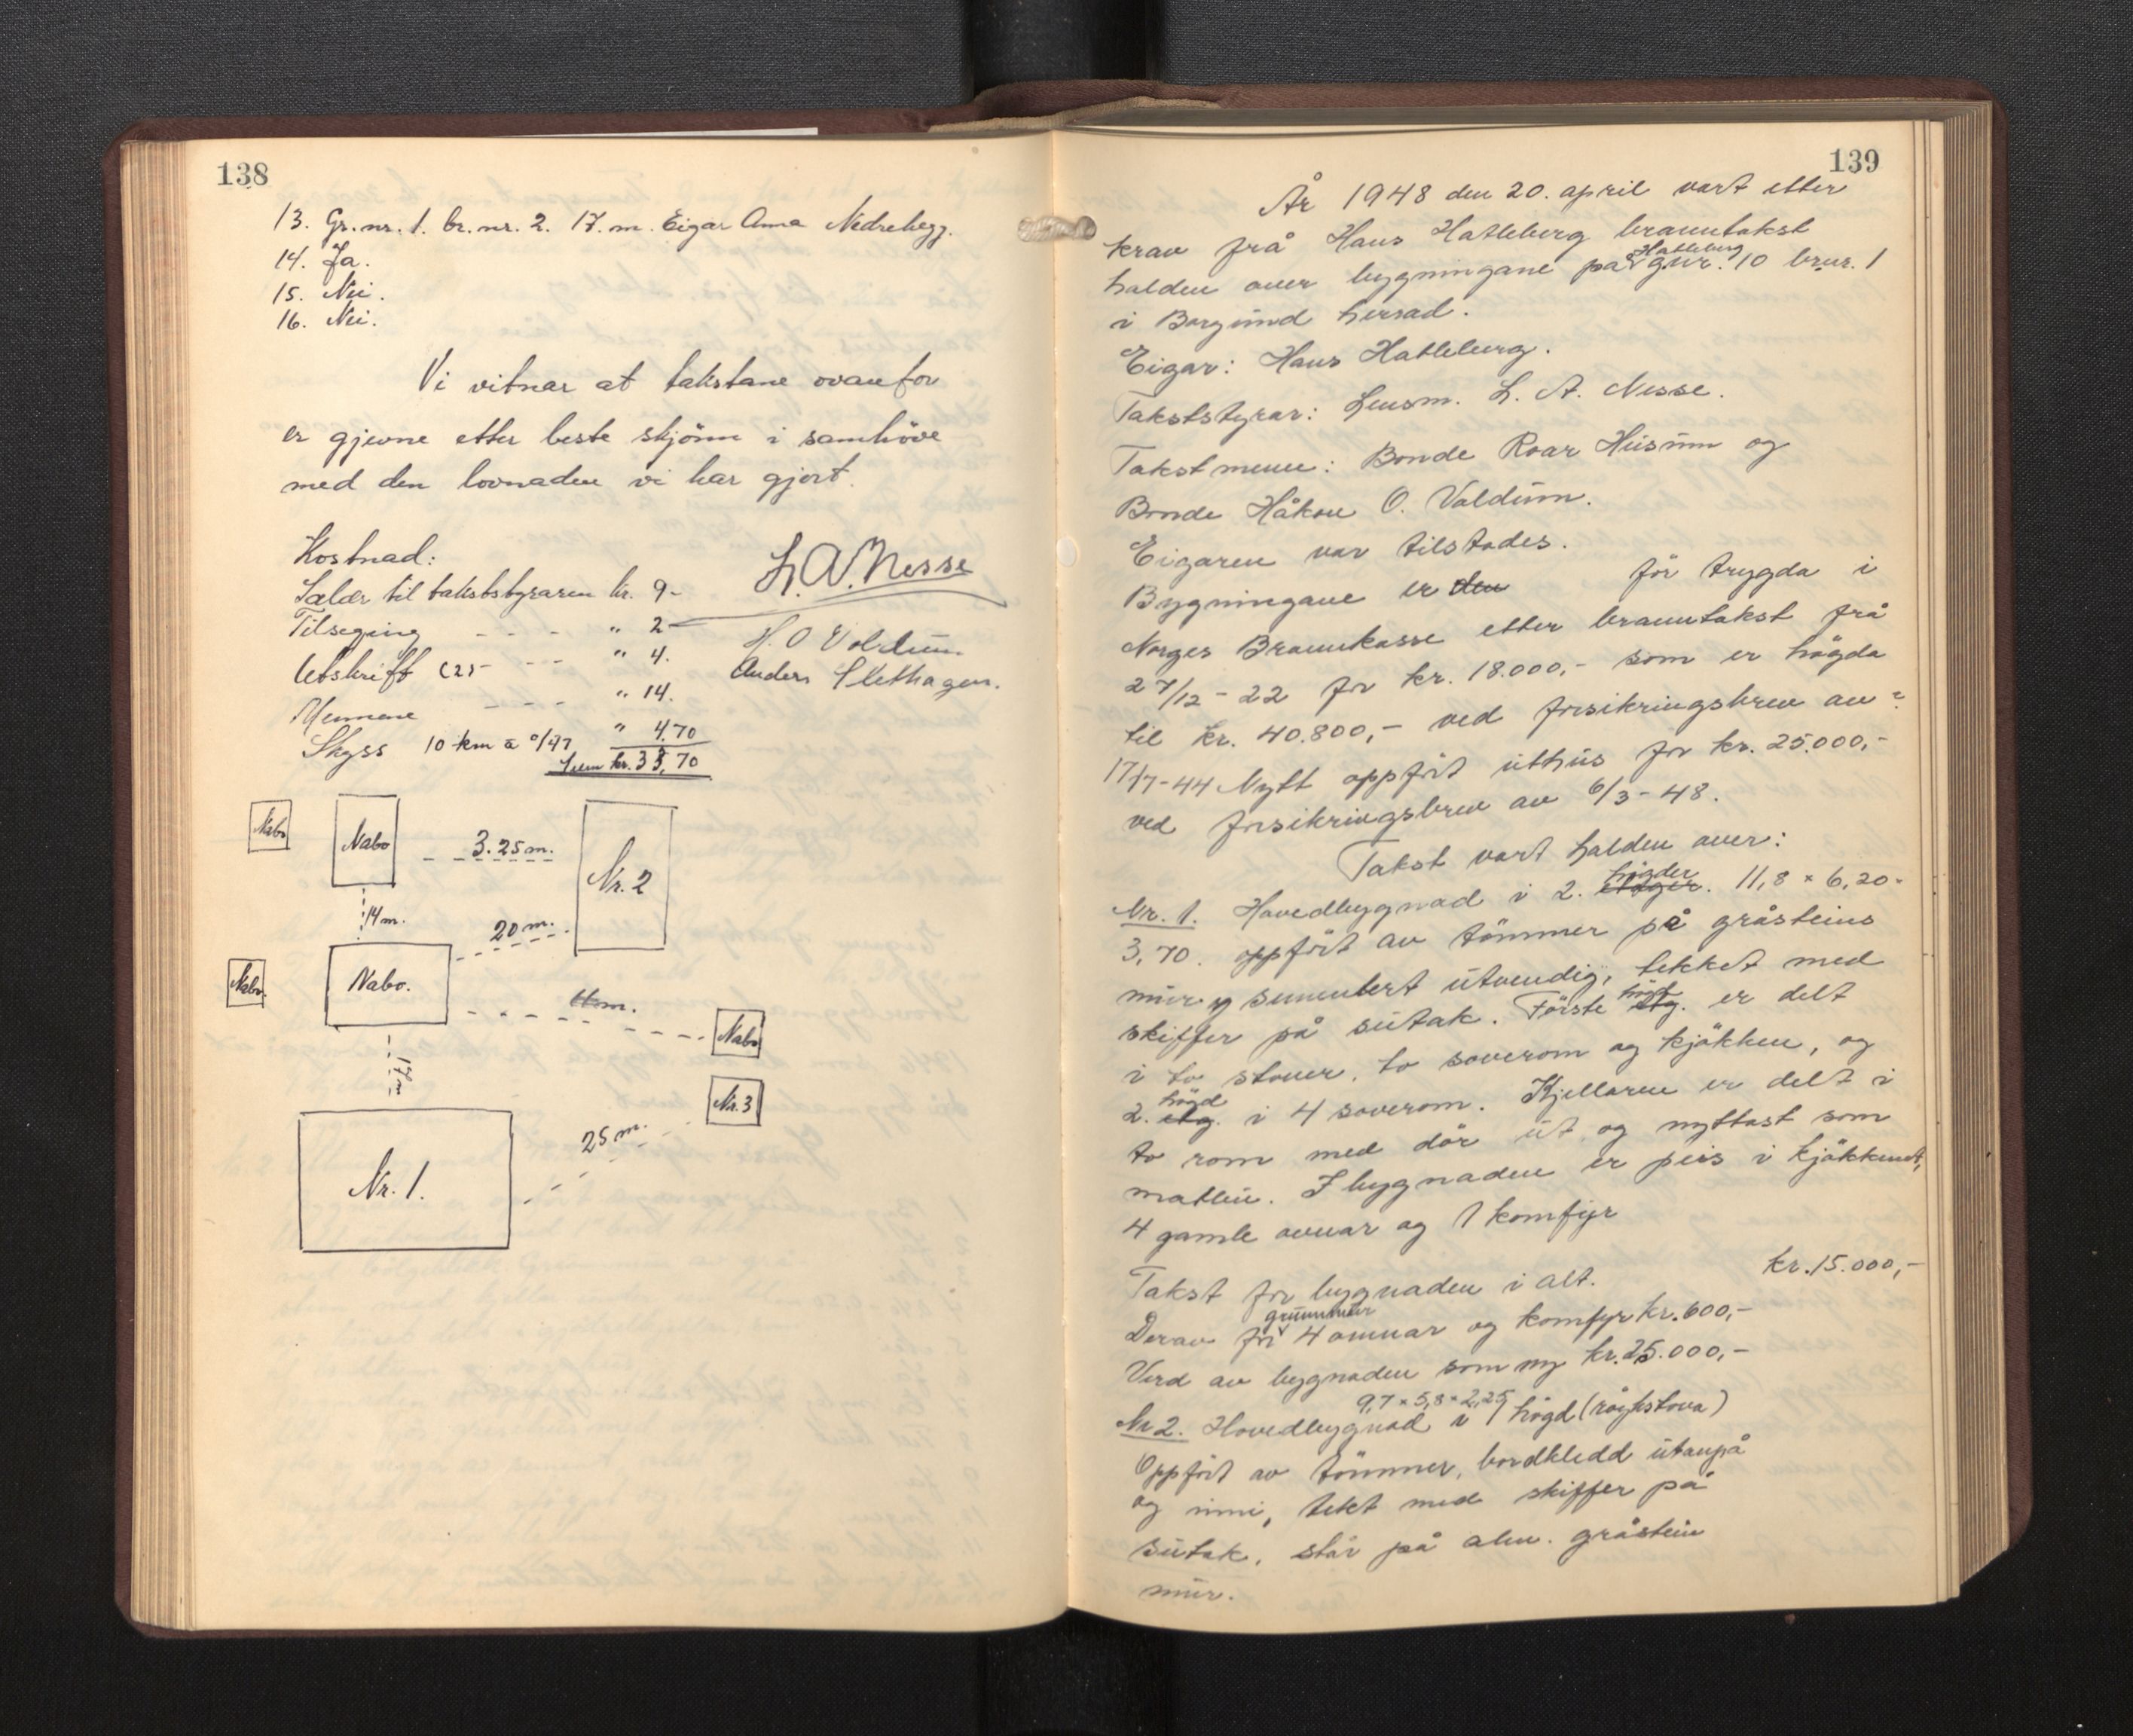 138
13. Gr.nr. 1. br.nr. 2. 17. m. Eigar Anna Nedrehegg.
14. Ja.
15. Nei.
16. Nei.
Vi vitnar at takstane ovanfor
er gjevne etter beste skjönn i samhöve
med den lovnaden vi har gjort.
Kostnad:
Salær til takststyraren kr. 9-
Tilseging - - - " 2-
Utskrift (2) - - - " 4.
Mennene - - - " 14.
Skyss 10 km a 0/47 " 4.70
Sum kr. 33,70
L. A. Nesse
H. O Voldum
Anders Slethagen.
Nabo
Nabo
3.25 m.
Nr. 2
14 m.
20 m.
Nabo.
Nabo.
Nabo
17 m
Nr. 3
25 m.
Nr. 1.
139
År 1948 den 20. april vart etter
krav frå Hans Hatleberg branntakst
halden over bygningane på Hatleberg gnr. 10 brnr. 1
i Borgund hersad.
Eigar: Hans Hatleberg.
Takststyrar: Lensm. L. A. Nesse.
Takstmenn: Bonde Roar Husum og
Bonde Håkon O. Voldum.
Eigaren var tilstades.
Bygningane er den för trygda i
Norges Brannkasse etter branntakst frå
27/12-22 for kr. 18.000,- som er högda
til kr. 40.800,- ved forsikringsbrev av
17/7-44 Nytt oppfört uthus for kr. 25.000,-
ved forsikringsbrev av 6/3-48.
Takst vart halden over:
Nr. 1. Hovedbygnad i 2. etager högder. 11,8 × 6,20 ×
3,70. oppfört av tömmer på gråsteins
mur og sementert utvendig, tekket med
skiffer på sutak. Förste etg. högd er delt
i to stover, to soverom og kjökken, og
2. etg. högd i 4 soverom. Kjellaren er delt i
to rom med dör ut og nyttast som
matbu. I bygnaden er peis i kjökkenet,
4 gamle ovnar og 1 komfyr
Takst for bygnaden i alt. kr. 15.000,-
Derav for grunnmur 4 omnar og komfyr kr. 600,-
Verd av bygnaden som ny kr. 25.000,-
9,7 × 5,8 × 2,25
Nr 2. Hovedbygnad i 1 högd (röykstova)
Oppfört av tömmer, bordkledd utanpå
og inni, tekt med skiffer på
sutak, står på alm. gråstein
mur.